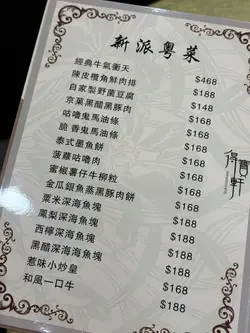 新派粵菜
經典牛氣衝天 $468
陳皮欖角鮮肉排 $188
自家製野菌豆腐 $148
京菓黑醋黑豚肉 $168
咕嚕鬼馬油條 $168
脆香鬼馬油條 $168
泰式墨魚餅 $168
菠蘿咕嚕肉 $168
蜜椒薯仔牛柳粒 $188
金瓜銀魚蒸黑豚肉餅 $188
粟米深海魚塊 $188
鳳梨深海魚塊 $188
西檸深海魚塊 $188
黑醋深海海魚塊 $188
惹味小炒皇 $168
和風一口牛 $188
得寶軒